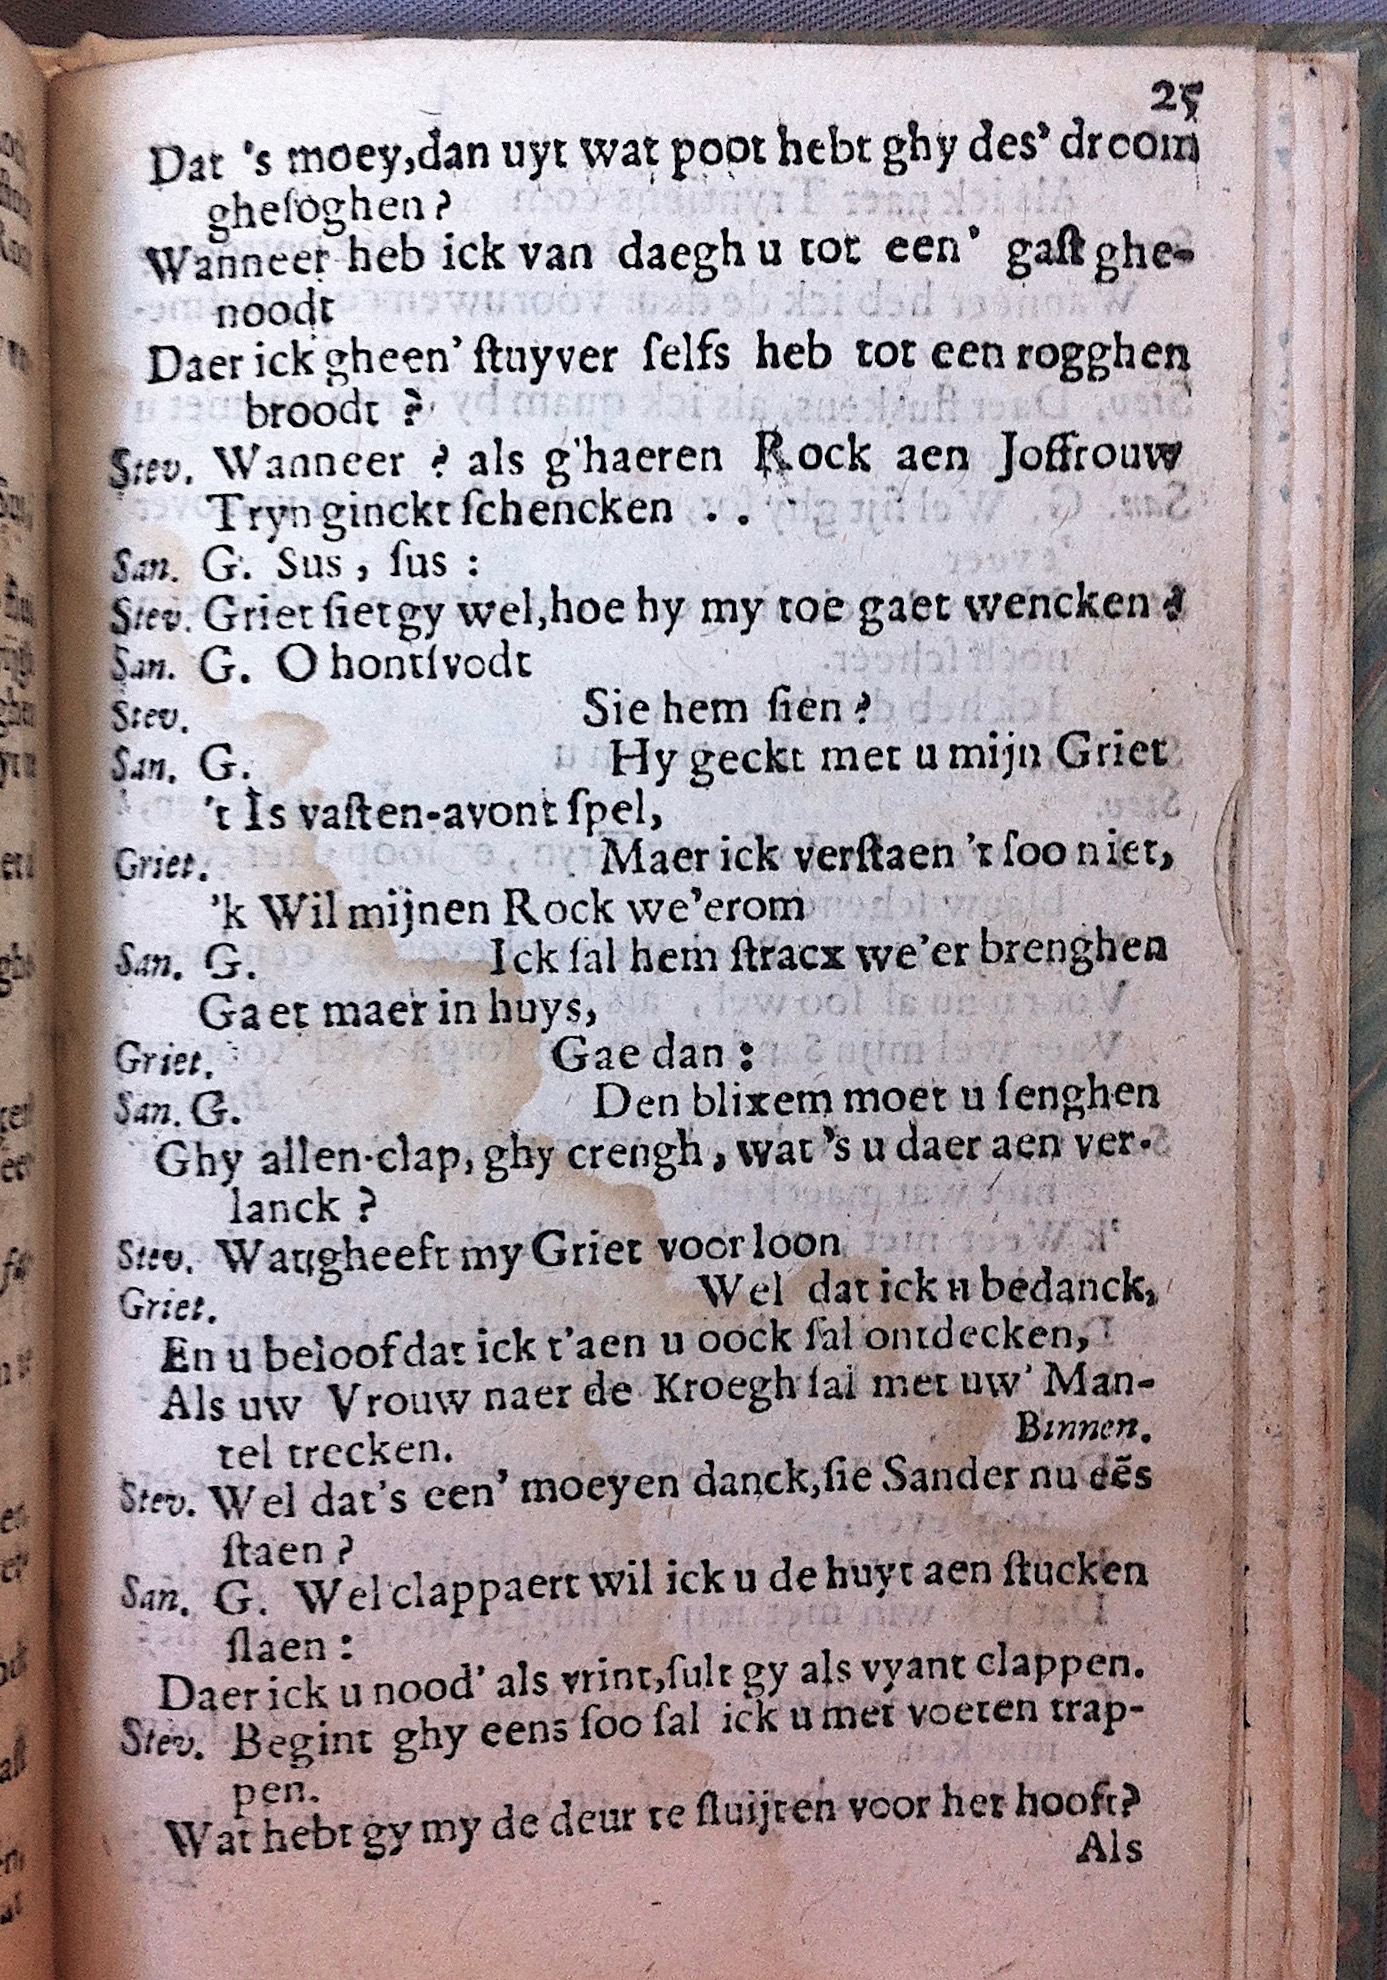 25
Dat 's moey, dan uyt wat poot hebt ghy des' droom
gheſoghen?
Wanneer heb ick van daegh u tot een' gaſt ghe-
noodt
Daer ick gheen' ſtuyver ſelfs heb tot een rogghen
broodt?
Stev. Wanneer? als g'haeren Rock aen Joffrouw
Tryn ginckt ſchencken . .
San. G. Sus, ſus:
Stev. Griet ſiet gy wel, hoe hy my toe gaet wencken?
San. G. O hontſvodt
Stev. Sie hem ſien?
San. G. Hy geckt met u mijn Griet
't Is vaſten-avont ſpel,
Griet. Maer ick verſtaen 't ſoo niet,
'k Wil mijnen Rock we'erom
San. G. Ick ſal hem ſtracx we'er brenghen
Gaet maer in huys,
Griet. Gae dan:
San. G. Den blixem moet u ſenghen
Ghy allen-clap, ghy crengh, wat 's u daer aen ver-
lanck?
Stev. Wat gheeft my Griet voor loon
Griet. Wel dat ick u bedanck,
En u beloof dat ick t'aen u oock ſal ontdecken,
Als uw Vrouw naer de Kroegh ſal met uw' Man-
tel trecken. Binnen.
Stev. Wel dat's een' moeyen danck, ſie Sander nu eẽs
ſtaen?
San. G. Wel clappaert wil ick u de huyt aen ſtucken
ſlaen:
Daer ick u nood' als vrint, ſult gy als vyant clappen.
Stev. Begint ghy eens ſoo ſal ick u met voeten trap-
pen.
Wat hebt gy my de deur te ſluijten voor het hooft?
Als